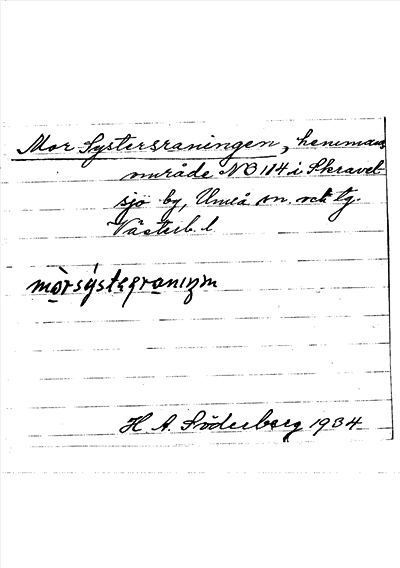 Mor Systersraningen, hemmans
område NO 114 i Skravel
sjö by, Umeå sn. och tg.
Västerb. l.
mòrsýsteɽranıŋm
H A. Söderberg 1934